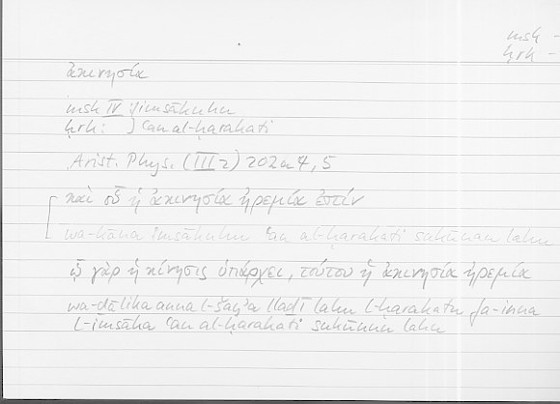 msk -
ḥrk -
ἀκινησία
msk IV imsākuhu
ḥrk: } ʿan al-ḥarakati
Arist. Phys. (III 2) 202a4,5
καὶ οὗ ἡ ἀκινησία ἠρεμία ἐστίν
wa-kāna imsākuhu ʿan al-ḥarakati sukūnan lahu
ᾧ γὰρ ἡ κίνησις ὑπάρχει, τούτου ἡ ἀκινησία ἠρεμία
wa-ḏālika anna l-šayʾa llaḏī lahu l-ḥarakatu fa-inna
l-imsāka ʿan al-ḥarakati sukūnun lahu